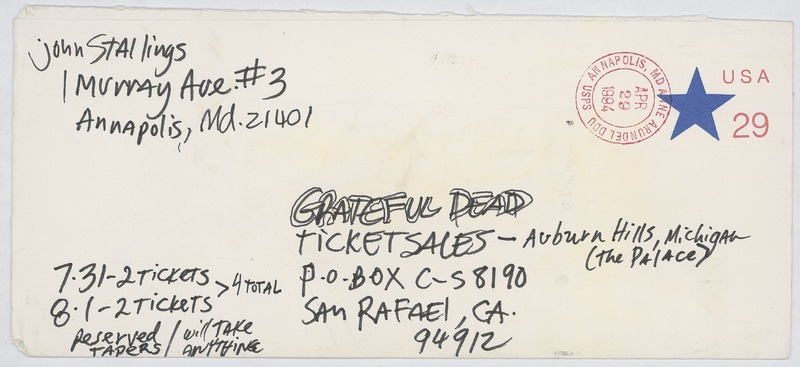 John Stallings
1 Murray Ave. #3
Annapolis, Md. 21401
ANNAPOLIS, MD ANNE ARUNDEL DDU USPS
APR
29
1994
USA
29
GRATEFUL DEAD
TICKET SALES – Auburn Hills, Michigan
(The PALACE)
P.O. BOX C-S 8190
SAN RAFAEL, CA.
94912
7.31-2 TICKETS > 4 TOTAL
8.1-2 TICKETS
Reserved / will TAKE
TAPERS / ANYTHING